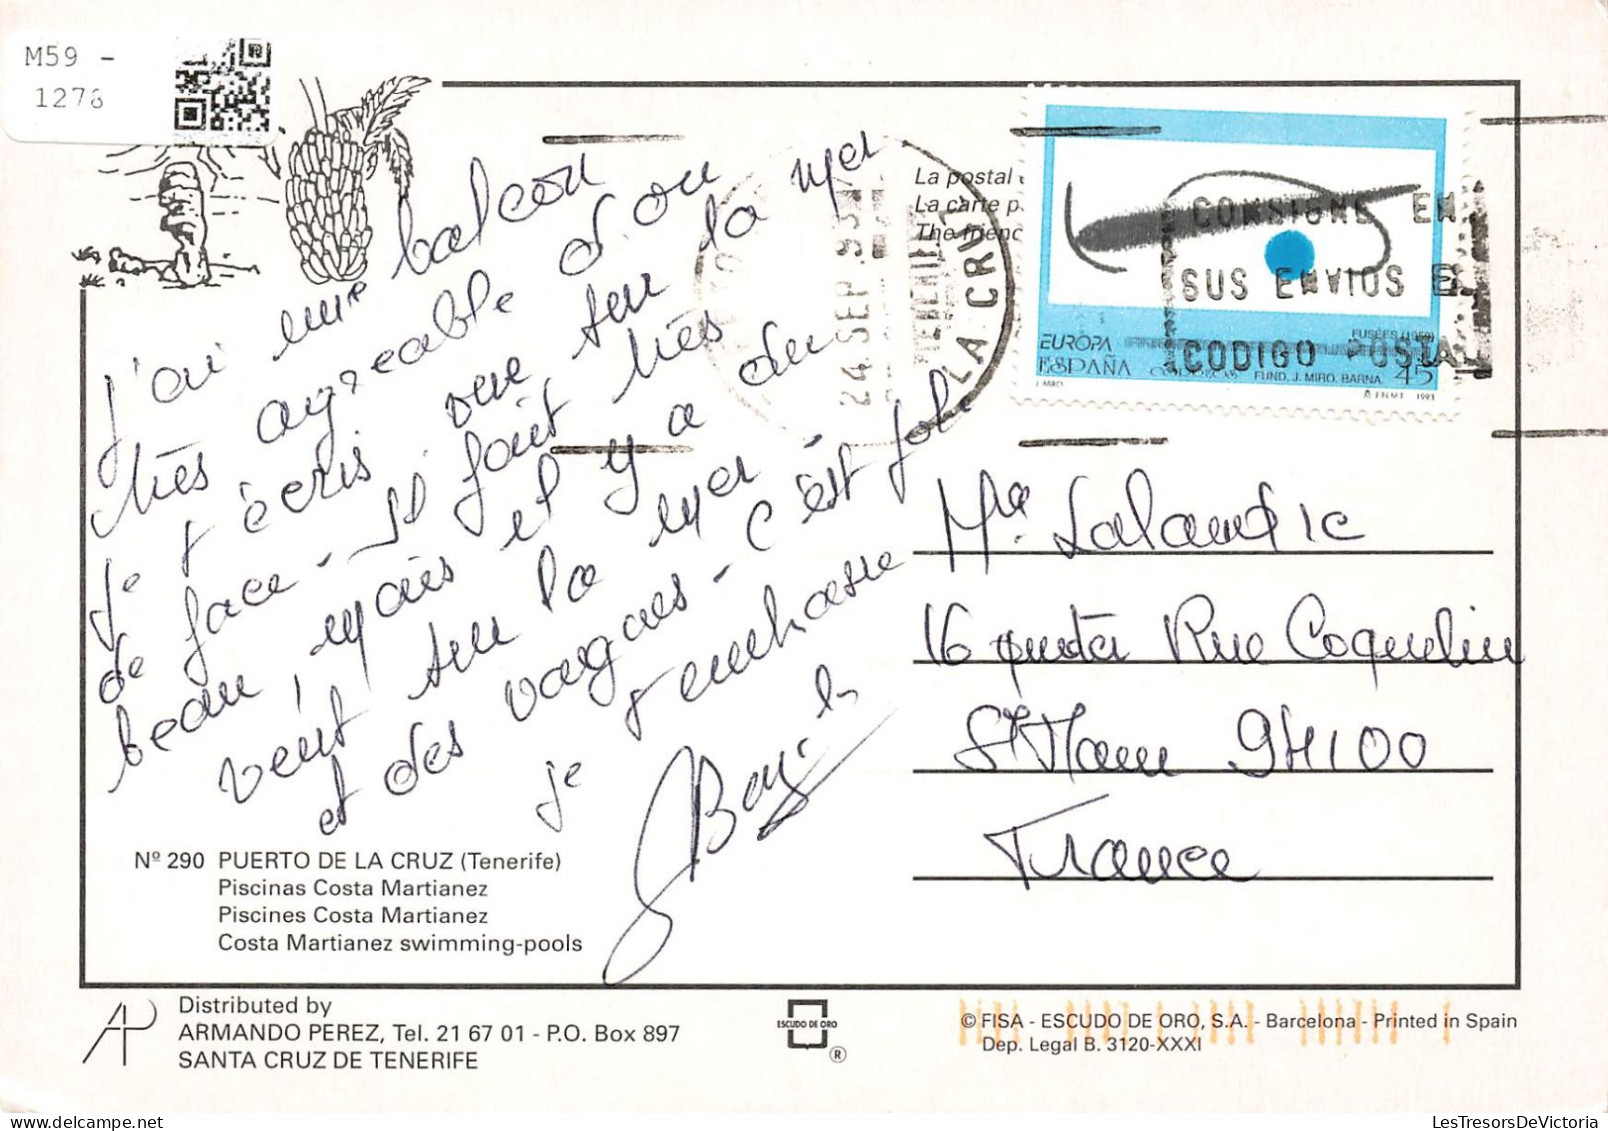 M59 -
1278
La postal
La carte p
The friend
24 SEP 93
LA CRUZ
CONSIGNE EN
SUS ENVIOS E
CODIGO POSTA
FUSÉES (1959)
EUROPA
ESPAÑA
FUND. J. MIRO. BARNA. 45
J. MIRO
1993
J'ai une balcon
très agréable d'ou
je t'écris, vue sur la mer
de face - Il fait très
beau, mais il y a du
vent sur la mer -
et des vagues - C'est joli
je t'embrasse
Mme
16 Rue Coquelin
St Maur 94100
France
Nº 290 PUERTO DE LA CRUZ (Tenerife)
Piscinas Costa Martianez
Piscines Costa Martianez
Costa Martianez swimming-pools
AP
Distributed by
ARMANDO PEREZ, Tel. 21 67 01 - P.O. Box 897
SANTA CRUZ DE TENERIFE
ESCUDO DE ORO
®
© FISA - ESCUDO DE ORO, S.A. - Barcelona - Printed in Spain
Dep. Legal B. 3120-XXXI
LesTresorsDeVictoria